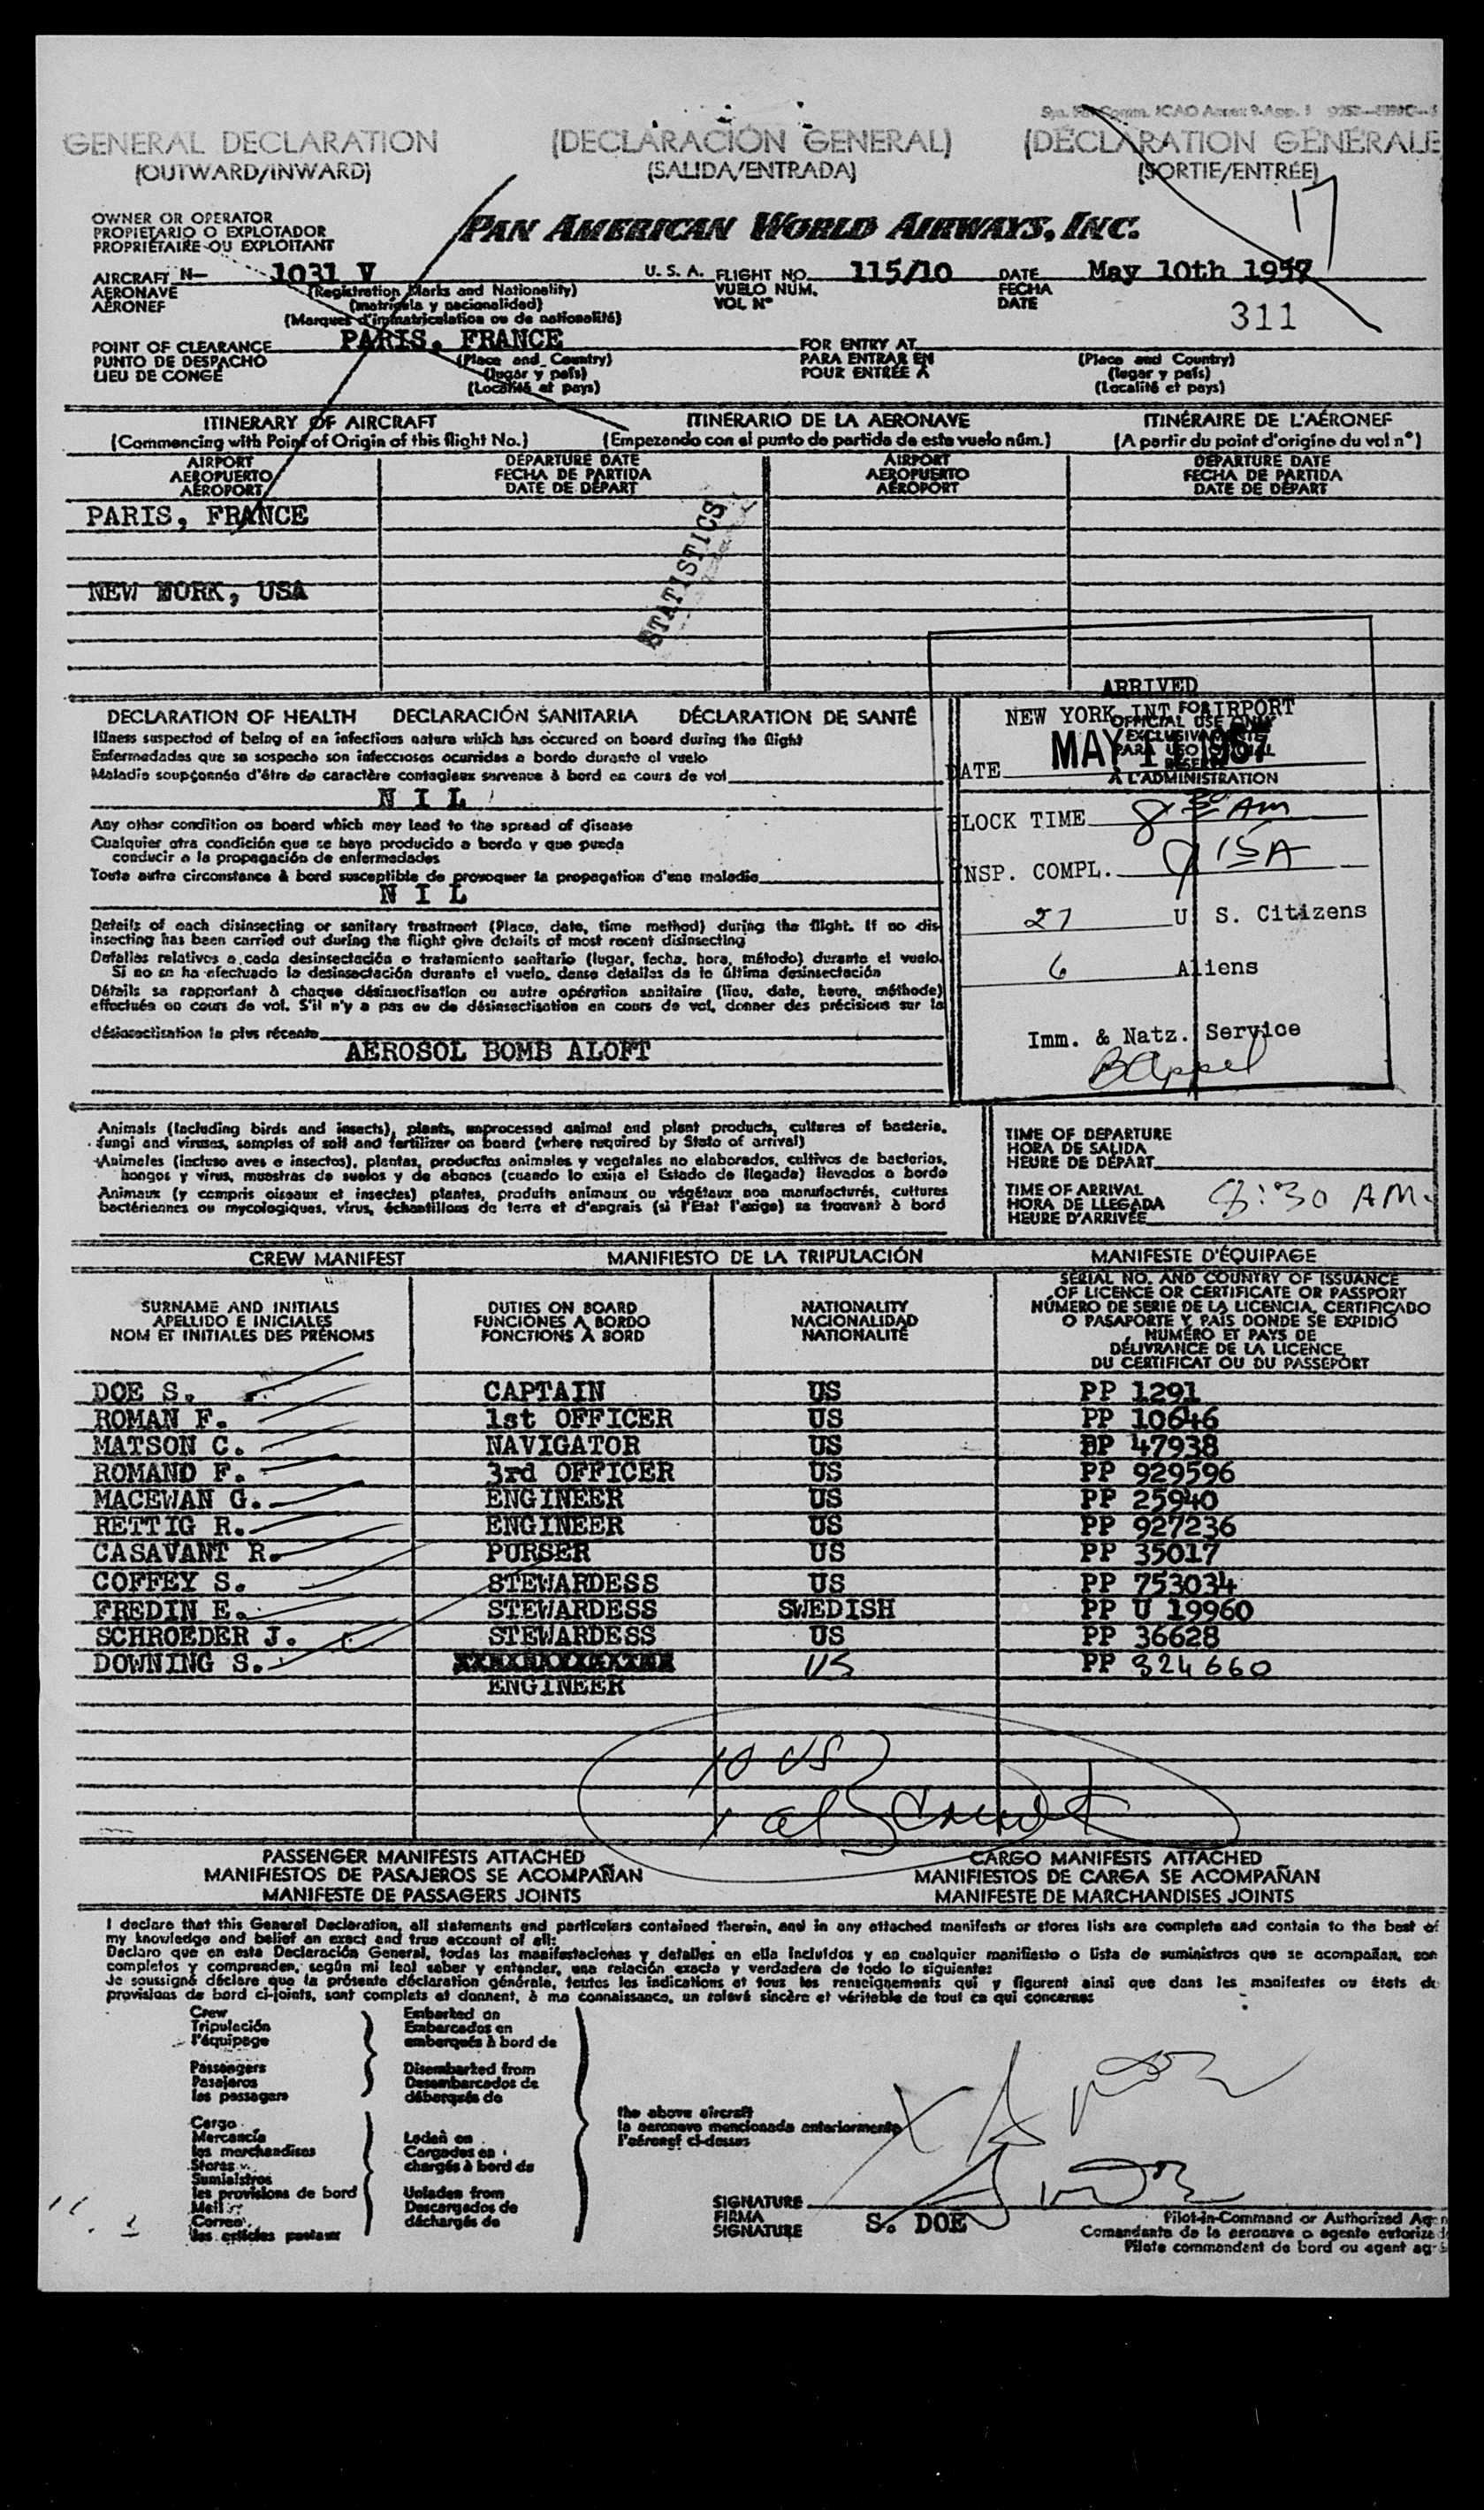 GENERAL DECLARATION (DECLARACIÓN GENERAL) (DÉCLARATION GÉNÉRALE
(OUTWARD/INWARD) (SALIDA/ENTRADA) (SORTIE/ENTRÉE)
17
OWNER OR OPERATOR
PROPIETARIO O EXPLOTADOR
PROPRIÉTAIRE OU EXPLOITANT
PAN AMERICAN WORLD AIRWAYS, INC.
AIRCRAFT N- 1031 V U. S. A. FLIGHT NO. 115/10 DATE May 10th 1957
AERONAVE (Registration Marks and Nationality) VUELO NUM. FECHA
AÉRONEF (matrícula y nacionalidad) VOL Nº DATE
(Marques d'immatriculation ou de nationalité) 311
POINT OF CLEARANCE PARIS, FRANCE FOR ENTRY AT
PUNTO DE DESPACHO (Place and Country) PARA ENTRAR EN (Place and Country)
LIEU DE CONGÉ (lugar y país) POUR ENTRÉE À (lugar y país)
(Localité et pays) (Localité et pays)
ITINERARY OF AIRCRAFT ITINERARIO DE LA AERONAVE ITINÉRAIRE DE L'AÉRONEF
(Commencing with Point of Origin of this flight No.) (Empezando con el punto de partida de este vuelo núm.) (A partir du point d'origine du vol nº)
AIRPORT DEPARTURE DATE AIRPORT DEPARTURE DATE
AEROPUERTO FECHA DE PARTIDA AEROPUERTO FECHA DE PARTIDA
AÉROPORT DATE DE DÉPART AÉROPORT DATE DE DÉPART
PARIS, FRANCE
STATISTICS
NEW YORK, USA
DECLARATION OF HEALTH DECLARACIÓN SANITARIA DÉCLARATION DE SANTÉ
Illness suspected of being of an infectious nature which has occured on board during the flight
Enfermedades que se sospecha son infecciosas ocurridas a bordo durante el vuelo
Maladie soupçonnée d'être de caractère contagieux survenue à bord en cours de vol
N I L
Any other condition on board which may lead to the spread of disease
Cualquier otra condición que se haya producido a bordo y que pueda
conducir a la propagación de enfermedades
Toute autre circonstance à bord susceptible de provoquer la propagation d'une maladie
N I L
Details of each disinsecting or sanitary treatment (Place, date, time method) during the flight. If no dis-
insecting has been carried out during the flight give details of most recent disinsecting
Detalles relativos a cada desinsectación o tratamiento sanitario (lugar, fecha, hora, método) durante el vuelo.
Si no se ha efectuado la desinsectación durante el vuelo, dense detalles de la última desinsectación
Détails se rapportant à chaque désinsectisation ou autre opération sanitaire (lieu, date, heure, méthode)
effectués en cours de vol. S'il n'y a pas eu de désinsectisation en cours de vol, donner des précisions sur la
désinsectisation la plus récente
AEROSOL BOMB ALOFT
ARRIVED
NEW YORK INT AIRPORT
FOR
OFFICIAL USE ONLY
EXCLUSIVAMENTE
PARA USO OFICIAL
RESERVÉ
À L'ADMINISTRATION
DATE MAY 1 1957
BLOCK TIME 8 30 AM
INSP. COMPL. 9 15 A
27 U. S. Citizens
6 Aliens
Imm. & Natz. Service
B Appel
Animals (including birds and insects), plants, unprocessed animal and plant products, cultures of bacteria,
fungi and viruses, samples of soil and fertilizer on board (where required by State of arrival)
Animales (incluso aves e insectos), plantas, productos animales y vegetales no elaborados, cultivos de bacterias,
hongos y virus, muestras de suelos y de abonos (cuando lo exija el Estado de llegada) llevados a bordo
Animaux (y compris oiseaux et insectes) plantes, produits animaux ou végétaux non manufacturés, cultures
bactériennes ou mycologiques, virus, échantillons de terre et d'engrais (si l'Etat l'exige) se trouvant à bord
TIME OF DEPARTURE
HORA DE SALIDA
HEURE DE DÉPART
TIME OF ARRIVAL
HORA DE LLEGADA
HEURE D'ARRIVÉE 8:30 AM.
CREW MANIFEST MANIFIESTO DE LA TRIPULACIÓN MANIFESTE D'ÉQUIPAGE
SURNAME AND INITIALS
APELLIDO E INICIALES
NOM ET INITIALES DES PRÉNOMS
DUTIES ON BOARD
FUNCIONES A BORDO
FONCTIONS À BORD
NATIONALITY
NACIONALIDAD
NATIONALITÉ
SERIAL NO. AND COUNTRY OF ISSUANCE
OF LICENCE OR CERTIFICATE OR PASSPORT
NÚMERO DE SERIE DE LA LICENCIA, CERTIFICADO
O PASAPORTE Y PAÍS DONDE SE EXPIDIÓ
NUMÉRO ET PAYS DE
DÉLIVRANCE DE LA LICENCE,
DU CERTIFICAT OU DU PASSEPORT
DOE S. CAPTAIN US PP 1291
ROMAN F. 1st OFFICER US PP 10646
MATSON C. NAVIGATOR US PP 47938
ROMANO F. 3rd OFFICER US PP 929596
MACEWAN G. ENGINEER US PP 25940
RETTIG R. ENGINEER US PP 927236
CASAVANT R. PURSER US PP 35017
COFFEY S. STEWARDESS US PP 753034
FREDIN E. STEWARDESS SWEDISH PP U 19960
SCHROEDER J. STEWARDESS US PP 36628
DOWNING S. US PP 324660
ENGINEER
10 US
PASSENGER MANIFESTS ATTACHED CARGO MANIFESTS ATTACHED
MANIFIESTOS DE PASAJEROS SE ACOMPAÑAN MANIFIESTOS DE CARGA SE ACOMPAÑAN
MANIFESTE DE PASSAGERS JOINTS MANIFESTE DE MARCHANDISES JOINTS
I declare that this General Declaration, all statements and particulars contained therein, and in any attached manifests or stores lists are complete and contain to the best of
my knowledge and belief an exact and true account of all:
Declaro que en esta Declaración General, todas las manifestaciones y detalles en ella incluídos y en cualquier manifiesto o lista de suministros que se acompañan, son
completos y comprenden, según mi leal saber y entender, una relación exacta y verdadera de todo lo siguiente:
Je soussigné déclare que la présente déclaration générale, toutes les indications et tous les renseignements qui y figurent ainsi que dans les manifestes ou états de
provisions de bord ci-joints, sont complets et donnent, à ma connaissance, un relevé sincère et véritable de tout ce qui concernes
Crew Embarked on
Tripulación Embarcados en
l'équipage embarqués à bord de
Passengers Disembarked from
Pasajeros Desembarcados de
les passagers débarqués de
Cargo
Mercancía Laden on
les marchandises Cargados en
Stores chargés à bord de
Suministros
les provisions de bord Unladen from
Mail Descargados de
Correo déchargés de
les articles postaux
the above aircraft
la aeronave mencionada anteriormente
l'aéronef ci-dessus
SIGNATURE
FIRMA
SIGNATURE
S. DOE
Pilot-in-Command or Authorized Agen
Comandante de la aeronave o agente autorizado
Pilote commandant de bord ou agent agr